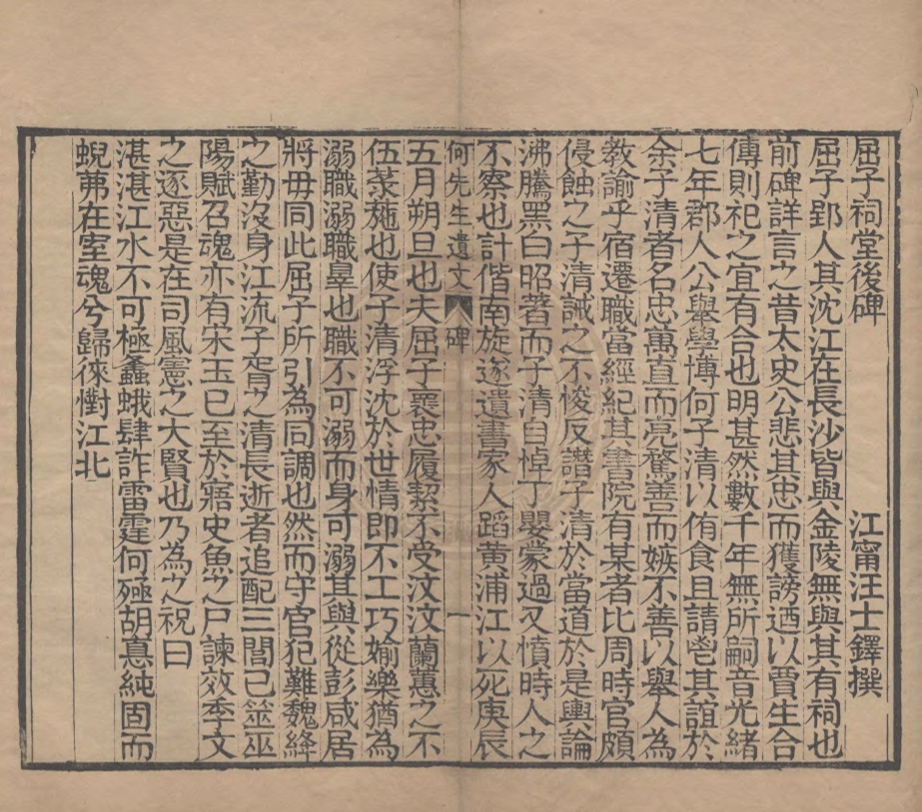 屈子祠堂後碑
江甯汪士鐸撰
屈子郢人其沈江在長沙皆與金陵無與其有祠也
前碑詳言之昔太史公悲其忠而獲謗迺以賈生合
傳則祀之宜有合也明甚然數千年無所嗣音光緒
七年郡人公舉學博何子清以侑食且請鬯其誼於
余子清者名忠萬直而亮驚善而嫉不善以舉人為
教諭乎宿遷職當經紀其書院有某者比周時官頗
侵蝕之子清誡之不悛反譖子清於當道於是輿論
沸騰黑白昭著而子清自悼丁嬰蒙過又憤時人之
不察也計偕南旋遂遺書家人蹈黄浦江以死庚辰
何先生遺文 碑 一
五月朔旦也夫屈子褱忠履絜不受汶汶蘭蕙之不
伍菉葹也使子清浮沈於世情即不工巧婾樂猶為
溺職溺職辠也職不可溺而身可溺其與從彭咸居
將毋同此屈子所引為同調也然而守官犯難魏絳
之勤沒身江流子胥之清長逝者追配三閭已筮巫
陽賦召魂亦有宋玉已至於寤史魚之尸諫效季文
之逐惡是在司風憲之大賢也乃為之祝曰
湛湛江水不可極蠡蛾肆詐雷霆何殛胡惪純固而
蜺茀在室魂兮歸徠懰江北